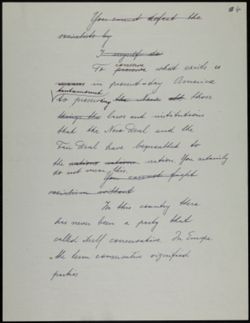 4
You cannot defeat the
socialists by
I myself do
To conserve what exists
in present-day America
tantamount
to preserving those
things the laws and institutions
that the New Deal and the
Fair Deal have bequeathed to
the nation. You certainly
do not mean this.
You cannot fight
socialism without
In this country there
has never been a party that
called itself conservative. In Europe
the term conservative signified
parties